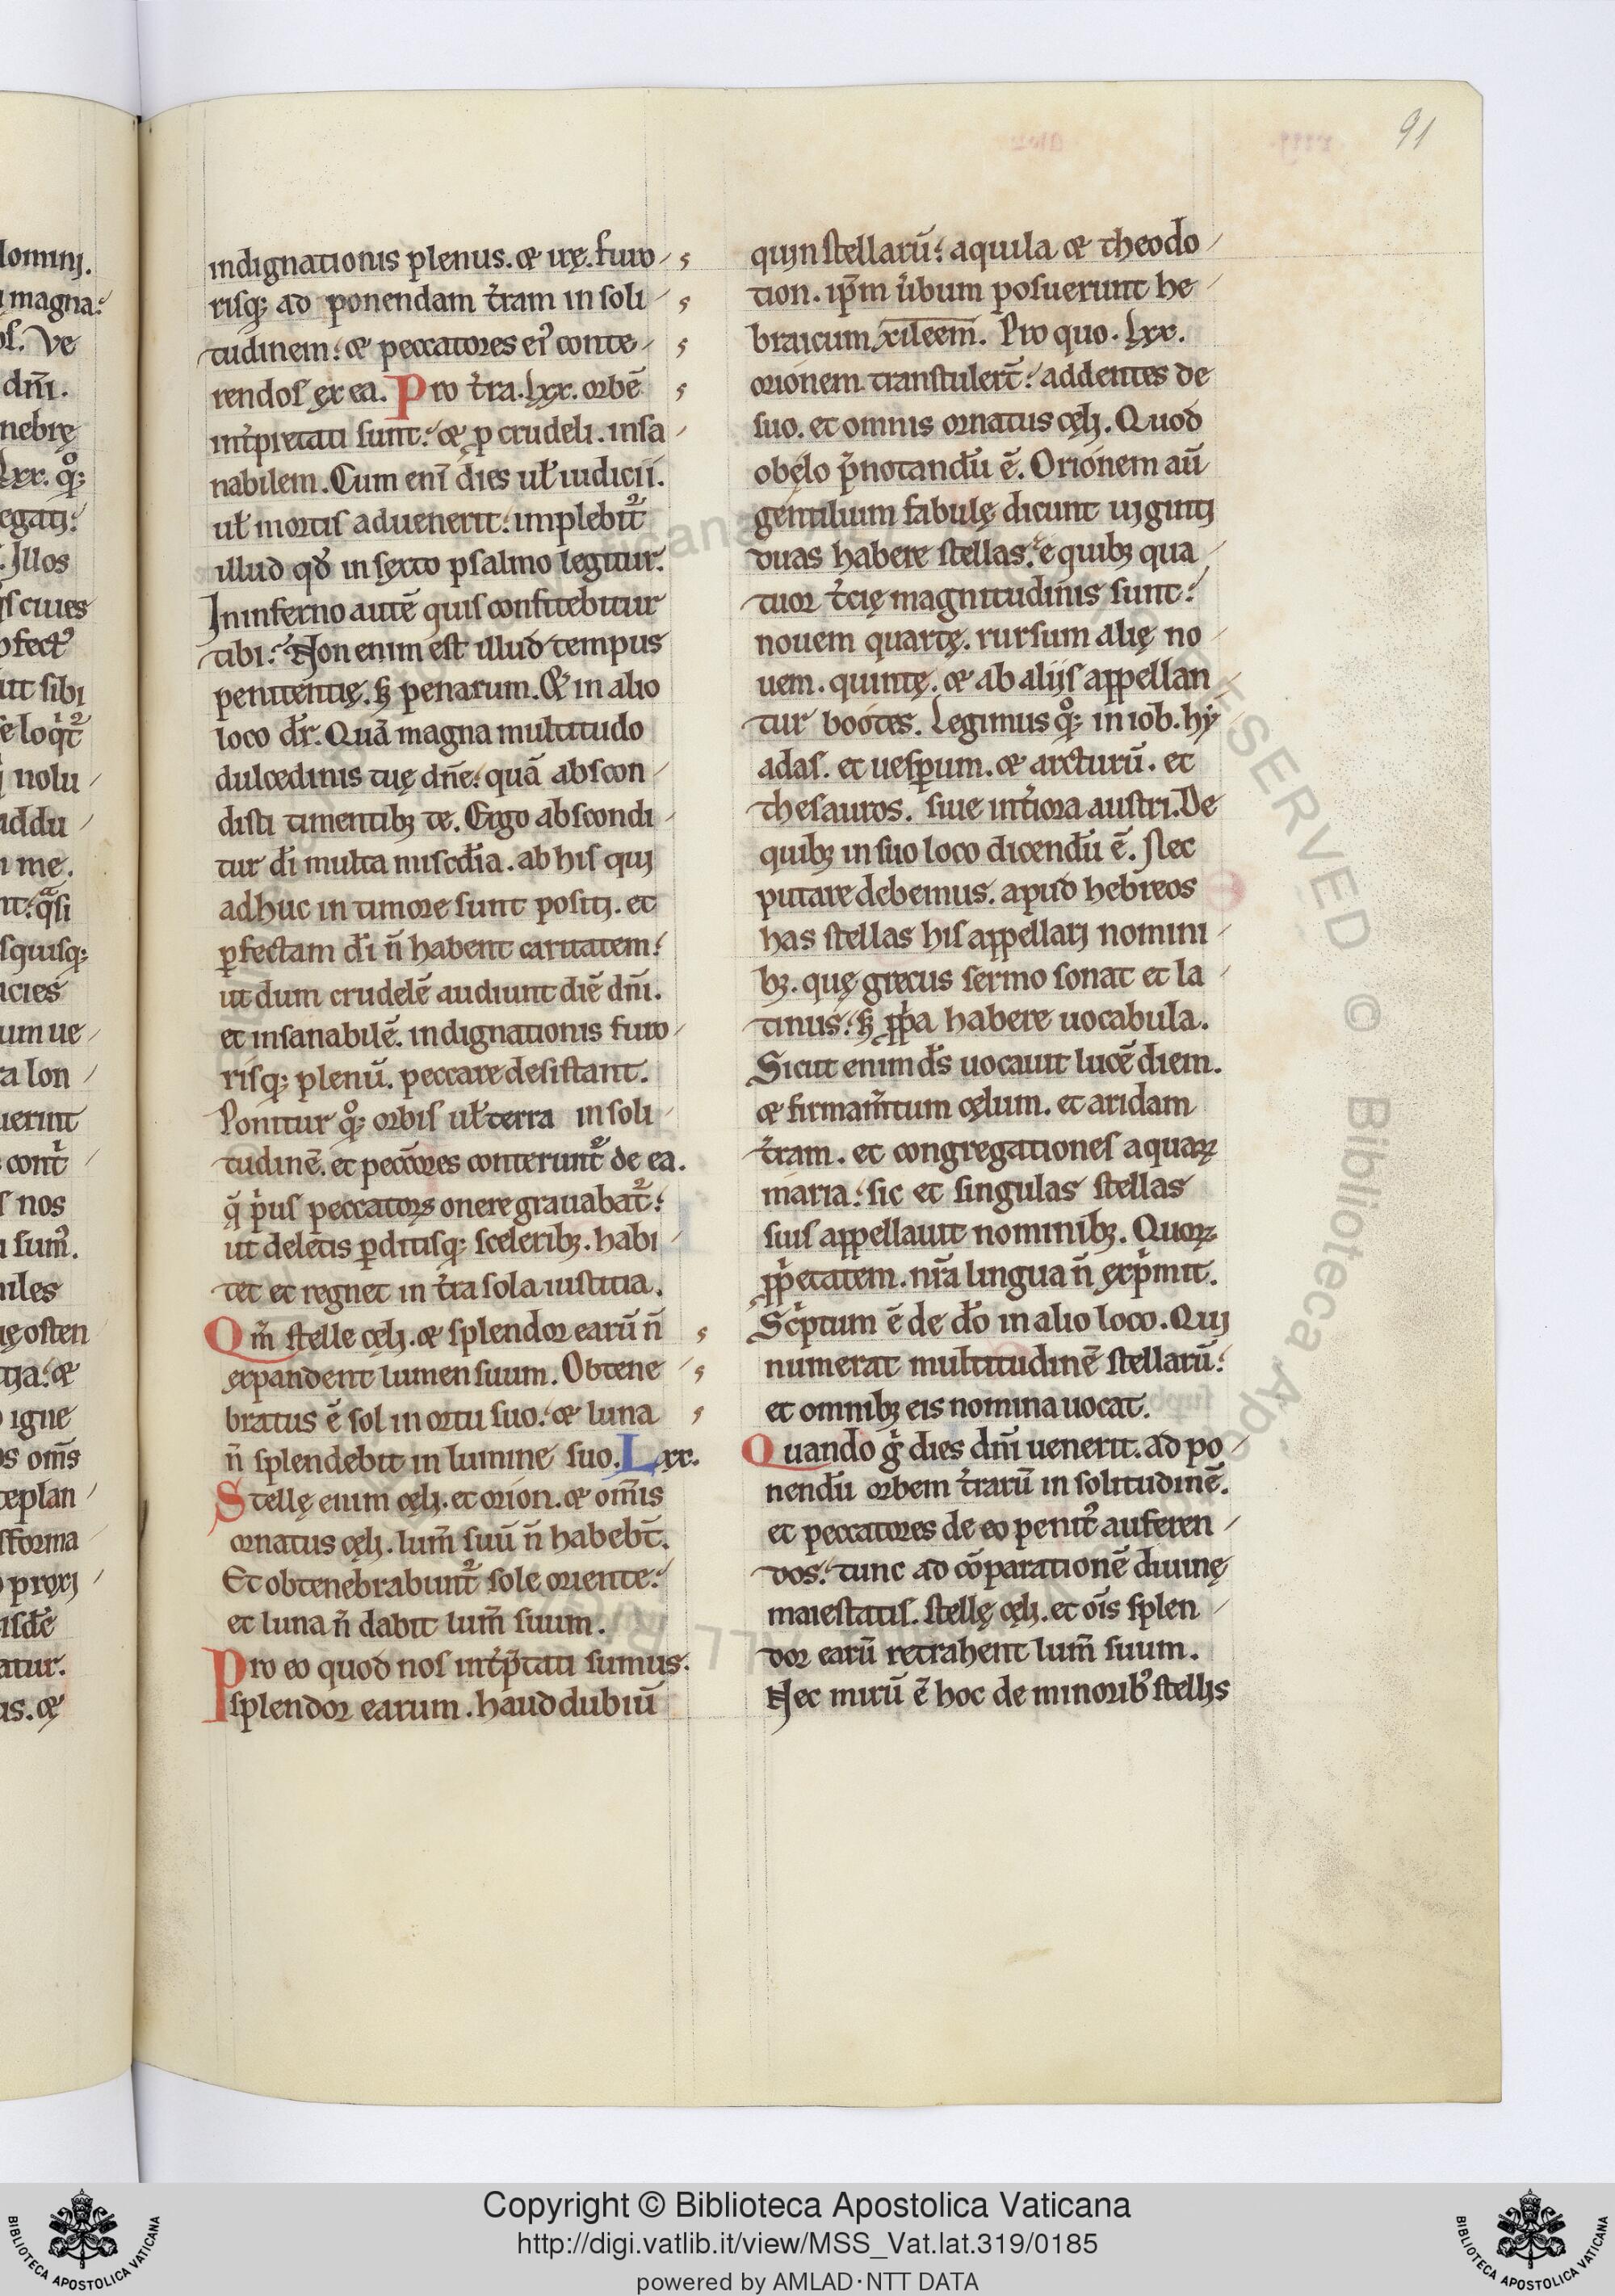 91
indignationis plenus. & irę. furo
risq; ad ponendam t̓ram in soli
tudinem: & peccatores ei᷒ conte
rendos ex ea. Pro t̓ra. lxx. orbē
int̓pretati sunt: & p crudeli. insa
nabilem. Cum eni᷒ dies uł iudicii.
uł mortis aduenerit: implebit᷑
illud qđ in sexto psalmo legitur.
In inferno autē quis confitebitur
tibi: Non enim est illud tempus
penitentię. sꝫ penarum. Et in alio
loco dr̄. Quā magna multitudo
dulcedinis tuę dn̄e: quā abscon
disti timentibꝫ te. Ergo abscondi
tur dī multa miscđia. ab his qui
adhuc in timore sunt positi. et
ꝑfectam dī n̄ habent caritatem:
ut dum crudelē audiunt diē dn̄i.
et insanabilē. indignationis furo
risq; plenū. peccare desistant.
Ponitur qͦ; orbis uł terra in soli
tudinē. et pecc̄ores conterunt᷑ de ea.
q̄ p̓us peccatorꝫ onere grauabat᷑:
ut deletis ꝑditisq; sceleribꝫ. habi
tet et regnet in t̓ra sola iustitia.
Qm̄ stelle cęli. & splendor earū n̄
expandent lumen suum. Obtene
bratus ē sol in ortu suo: & luna
n̄ splendebit in lumine suo. Lxx.
Stellę enim cęli. et orion. & om̄is
ornatus cęli. lum̄ suū n̄ habebt̄.
Et obtenebrabunt᷑ sole oriente:
et luna n̄ dabit lum̄ suum.
Pro eo quod nos int̓p̄tati sumus.
splendor earum. haud dubiū
quin stellarū: aquila & theodo
tion. ip̄m u̓bum posuerunt he
braicum xileem. Pro quo. lxx.
orionem transtulert̄: addentes de
suo. et omnis ornatus cęli. Quod
obęlo p̄notandū ē. Orionem aū
gentilium fabulę dicunt uiginti
duas habere stellas: e quibꝫ qua
tuor t̓cię magnitudinis sunt:
nouem quartę. rursum alię no
uem. quintę. & ab aliis appellan
tur bootes. Legimus qͦ; in iob. hy
adas. et uesꝑum. & arcturū. et
thesauros. siue int̓iora austri. De
quibꝫ in suo loco dicendū ē. Nec
putare debemus. apud hebreos
has stellas his appellari nomini
bꝫ. quę grecus sermo sonat et la
tinus: sꝫ ꝓpa habere uocabula.
Sicut enim ds̄ uocauit lucē diem.
& firmam̄tum cęlum. et aridam
t̓ram. et congregationes aquaꝝ
maria: sic et singulas stellas
suis appellauit nominibꝫ. Quoꝝ
ꝓp̓etatem. nr̄a lingua n̄ exp̓mit.
Sc̓ptum ē de dō in alio loco. Qui
numerat multitudinē stellarū:
et omnibꝫ eis nomina uocat.
Quando g̓ dies dn̄i uenerit. ad po
nendū orbem t̓rarū in solitudinē.
et peccatores de eo penit᷒ auferen
dos: tunc ad cōparationē diuinę
maiestatis. stellę cęli. et oīs splen
dor earū retrahent lum̄ suum.
Nec mirū ē hoc de minorib᷒ stellis
Copyright © Biblioteca Apostolica Vaticana
http://digi.vatlib.it/view/MSS_Vat.lat.319/0185
powered by AMLAD·NTT DATA
BIBLIOTECA APOSTOLICA VATICANA
BIBLIOTECA APOSTOLICA VATICANA